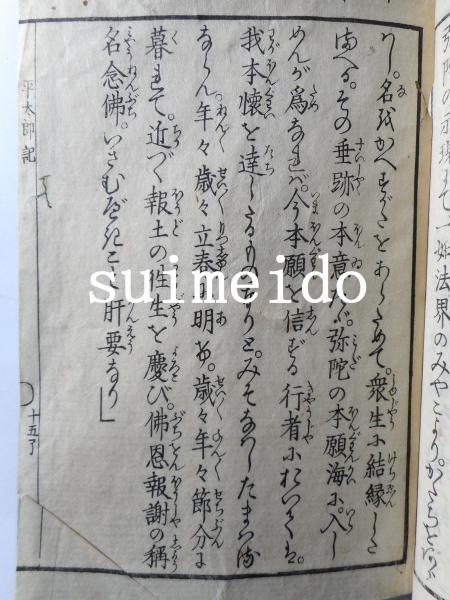 弥陀の示現まて一如法界のみやこよりかたちを
りし。名をかへすがたをあらためて。衆生に結縁した
まへる。その垂跡の本意たゞ弥陀の本願海に。入し
めんが為なれば。今本願を信ずる行者においては。
我本懐を達したるものなりと。みそなはしたまはる
ならん。年々歳々立春に明お。歳々年々節分に
暮れて。近づく報土の往生を慶び。佛恩報謝の稱
名念佛。いさむべきこと肝要なり
平太郎記
十五了
suimeido